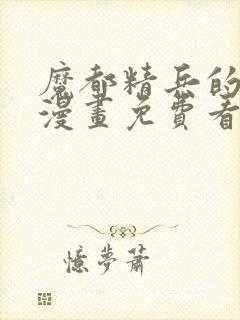 魔都精兵的
漫畫免費看
憶夢蕭